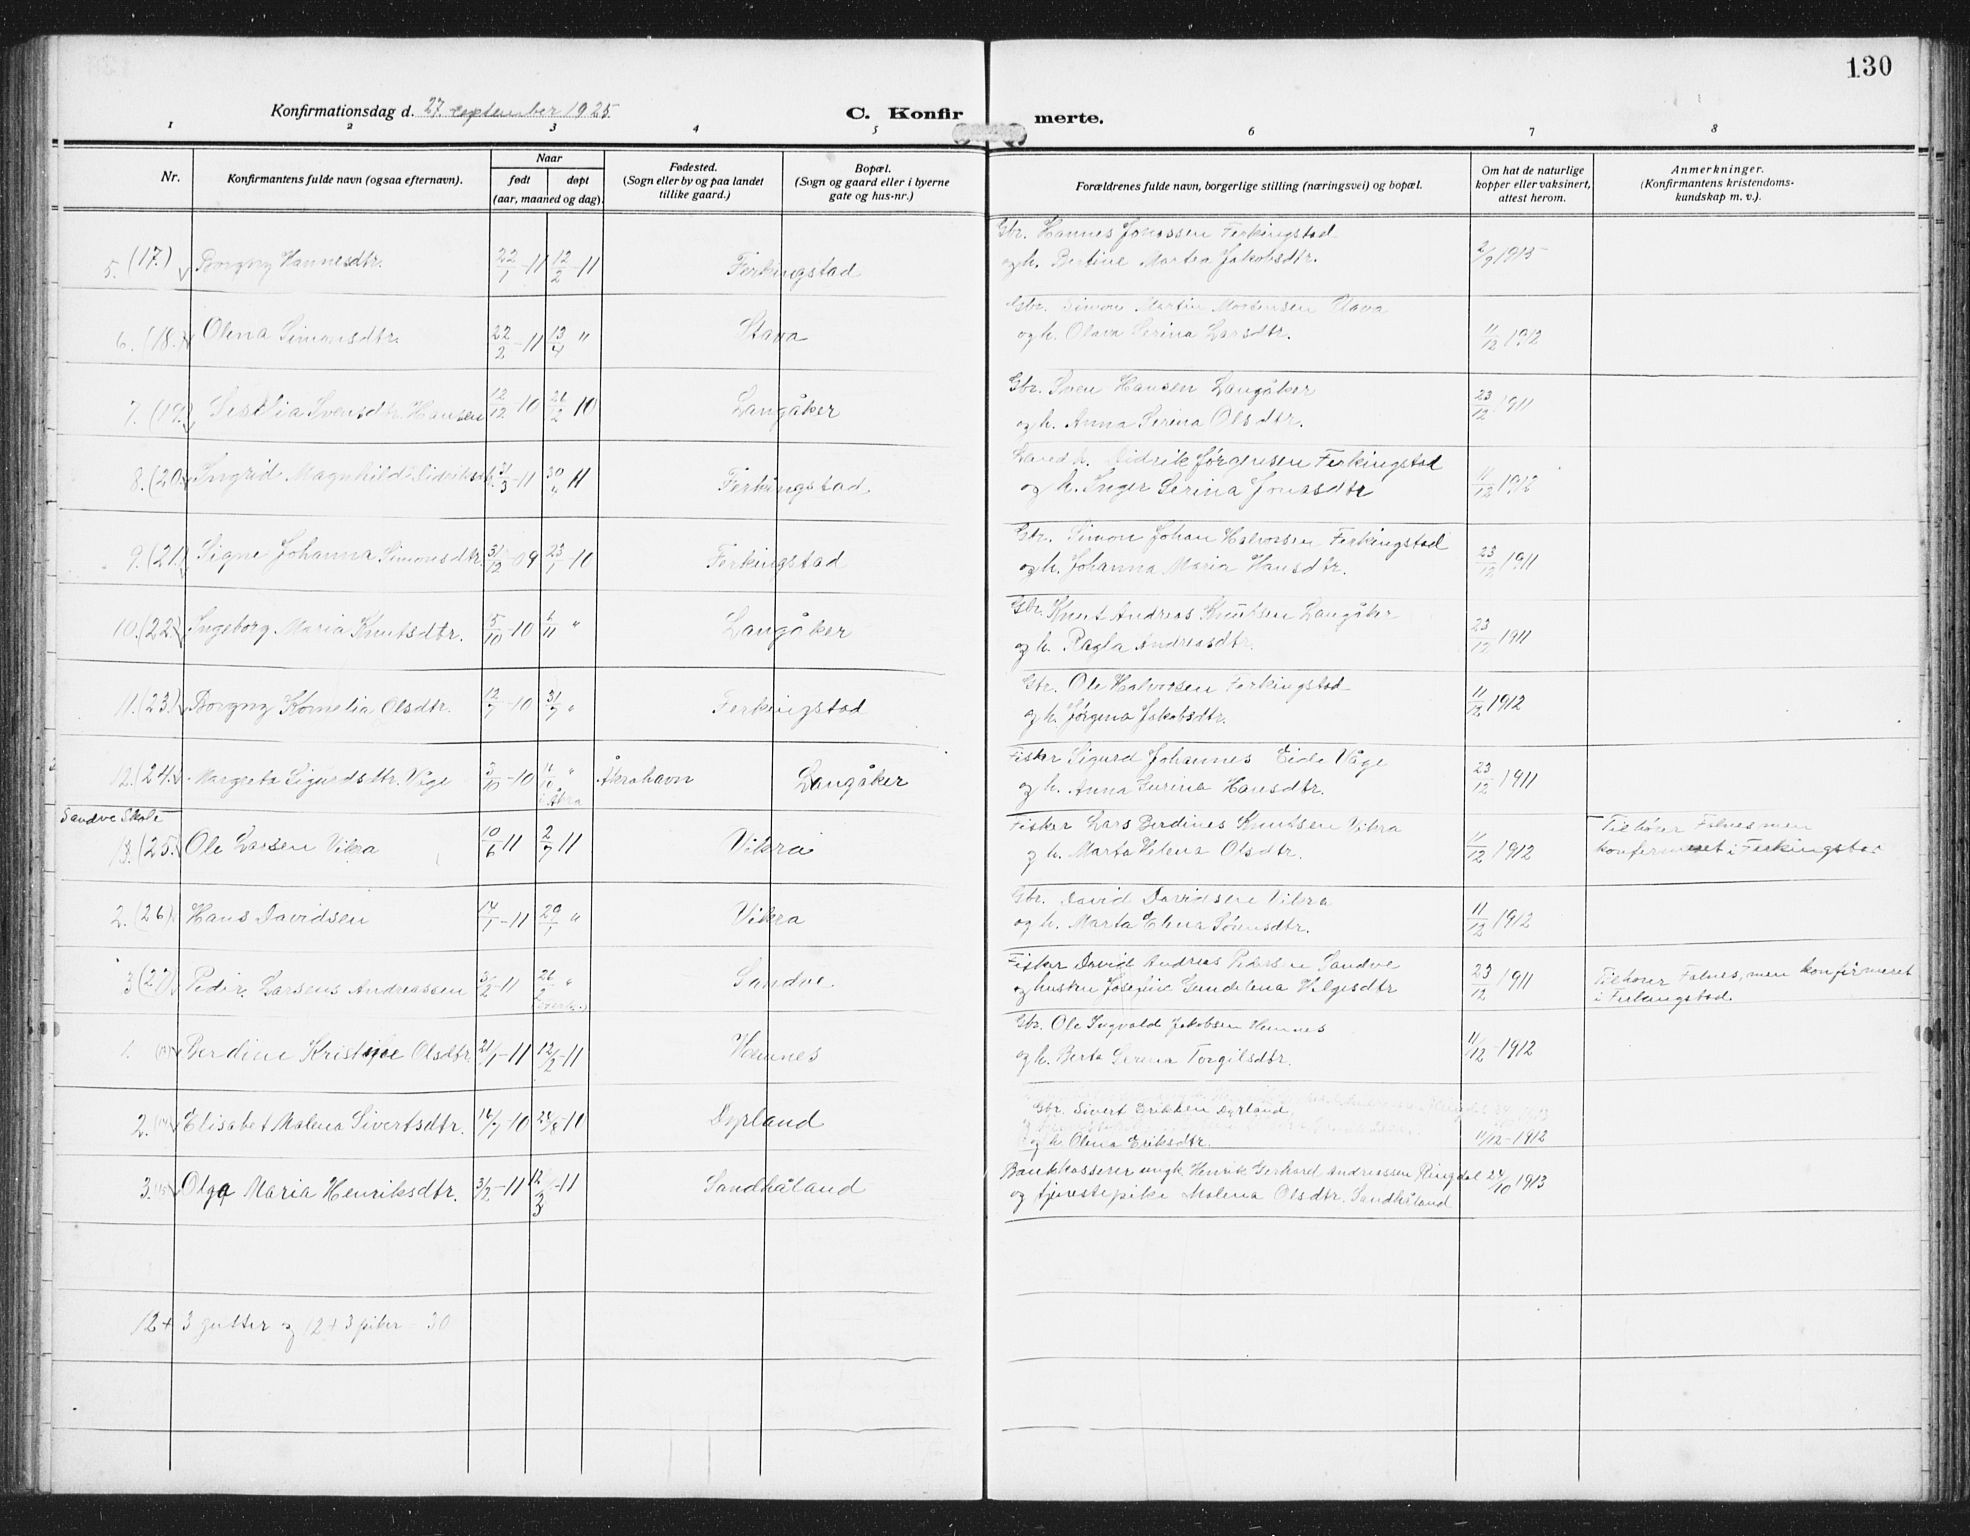 130
Konfirmationsdag d. 27. september 1925
C. Konfirmerte.
1 2 3 4 5 6 7 8
Nr.
Konfirmantens fulde navn (ogsaa efternavn).
Naar
født døpt
(aar, maaned og dag).
Fødested.
(Sogn eller by og paa landet
tillike gaard.)
Bopæl.
(Sogn og gaard eller i byerne
gate og hus-nr.)
Forældrenes fulde navn, borgerlige stilling (næringsvei) og bopæl.
Om hat de naturlige
kopper eller vaksinert,
attest herom.
Anmerkninger.
(Konfirmantens kristendoms-
kundskap m. v.).
Gbr. Hannes Jonassen Ferkingstad
5. (17.) Borgny Hannesdtr. 22/1-11 12/2-11 Ferkingstad og h. Bertine Marta Jakobsdtr. 2/9 1915
Gbr. Simon Martin Stava
6. (18.) Olena Simonsdtr. 22/2-11 13/4 " Stava og h. Olava Serina Larsdtr. 11/12 1912
Gbr. Sven Hansen Langåker
7. (19.) Svensdtr. Hansen 12/12-10 26/12 10 Langåker og h. Anna Serina Olsdtr. 23/12 1911
Didrik Jørgensen Ferkingstad
8. (20.) Ingrid Magnhild Didriksdtr. 11 11 Ferkingstad og h. Inger Serina Jonasdtr 11/12 1912
Gbr. Simon Johan Halvorsen Ferkingstad
9. (21.) Signe Johanna Simonsdtr. 31/12-09 23/1-10 Ferkingstad og h. Johanna Maria Hansdtr. 23/12 1911
Gbr. Knut Andreas Knutsen Langåker
10. (22.) Ingeborg Maria Knutsdtr. 5/10-10 6/11 " Langåker og h. Ragla Andreasdtr. 23/12 1911
Gbr. Ole Halvorsen Ferkingstad
11. (23.) Borgny Kornelia Olsdtr. 12/7-10 31/7 " Ferkingstad og h. Jørgena Jakobsdtr. 11/12 1912
Fisker Sigurd Johannes Eide Våge
12. (24.) Margreta Sigurdsdtr. Våge 10 " i Åkra Åkrahavn Langåker og h. Anna Gurina Hansdtr. 23/12 1911
Sandve Skole
Fisker Lars Berdines Knutsen Vikra
(25.) Ole Larsen Vikra 10/6 11 2/7 11 Vikra og h. Marta Helena Olsdtr. 11/12 1912
Tilhører Falnes men
konfirmeret i Ferkingstad
Gbr. David Davidsen Vikra
2. (26). Hans Davidsen 14/1-11 29/1 " Vikra og h. Marta Elena Sørensdtr. 11/12 1912
Fisker David Andreas Pedersen Sandve
3 (27). Peder Larsens Andreassen 11 26/2 " Sandve og hustru Josefine Gundelena Helgesdtr 23/12 1911
Tilhører Falnes, men konfirmeret
i Ferkingstad.
Gbr. Ole Ingvald Jakobsen Hemnes
1. Berdine Kristine Olsdtr. 21/1-11 12/2-11 Hemnes og h. Berta Serina Torgilsdtr. 11/12-1912
Gbr. Sivert Eriksen Dyrland,
2. Elisabet Malena Sivertsdtr. 10 10 Dyrland og h. Olena Eriksdtr. 11/12-1912
Bankkasserer ungk. Henrik Gerhard Andreassen Ringdal 24/10 1913
3. Olga Maria Henriksdtr. 3/2-11 12/3-11 Sandhåland og tjenestepike Malena Olsdtr. Sandhåland
12 + 3 gutter og 12 + 3 piker = 30